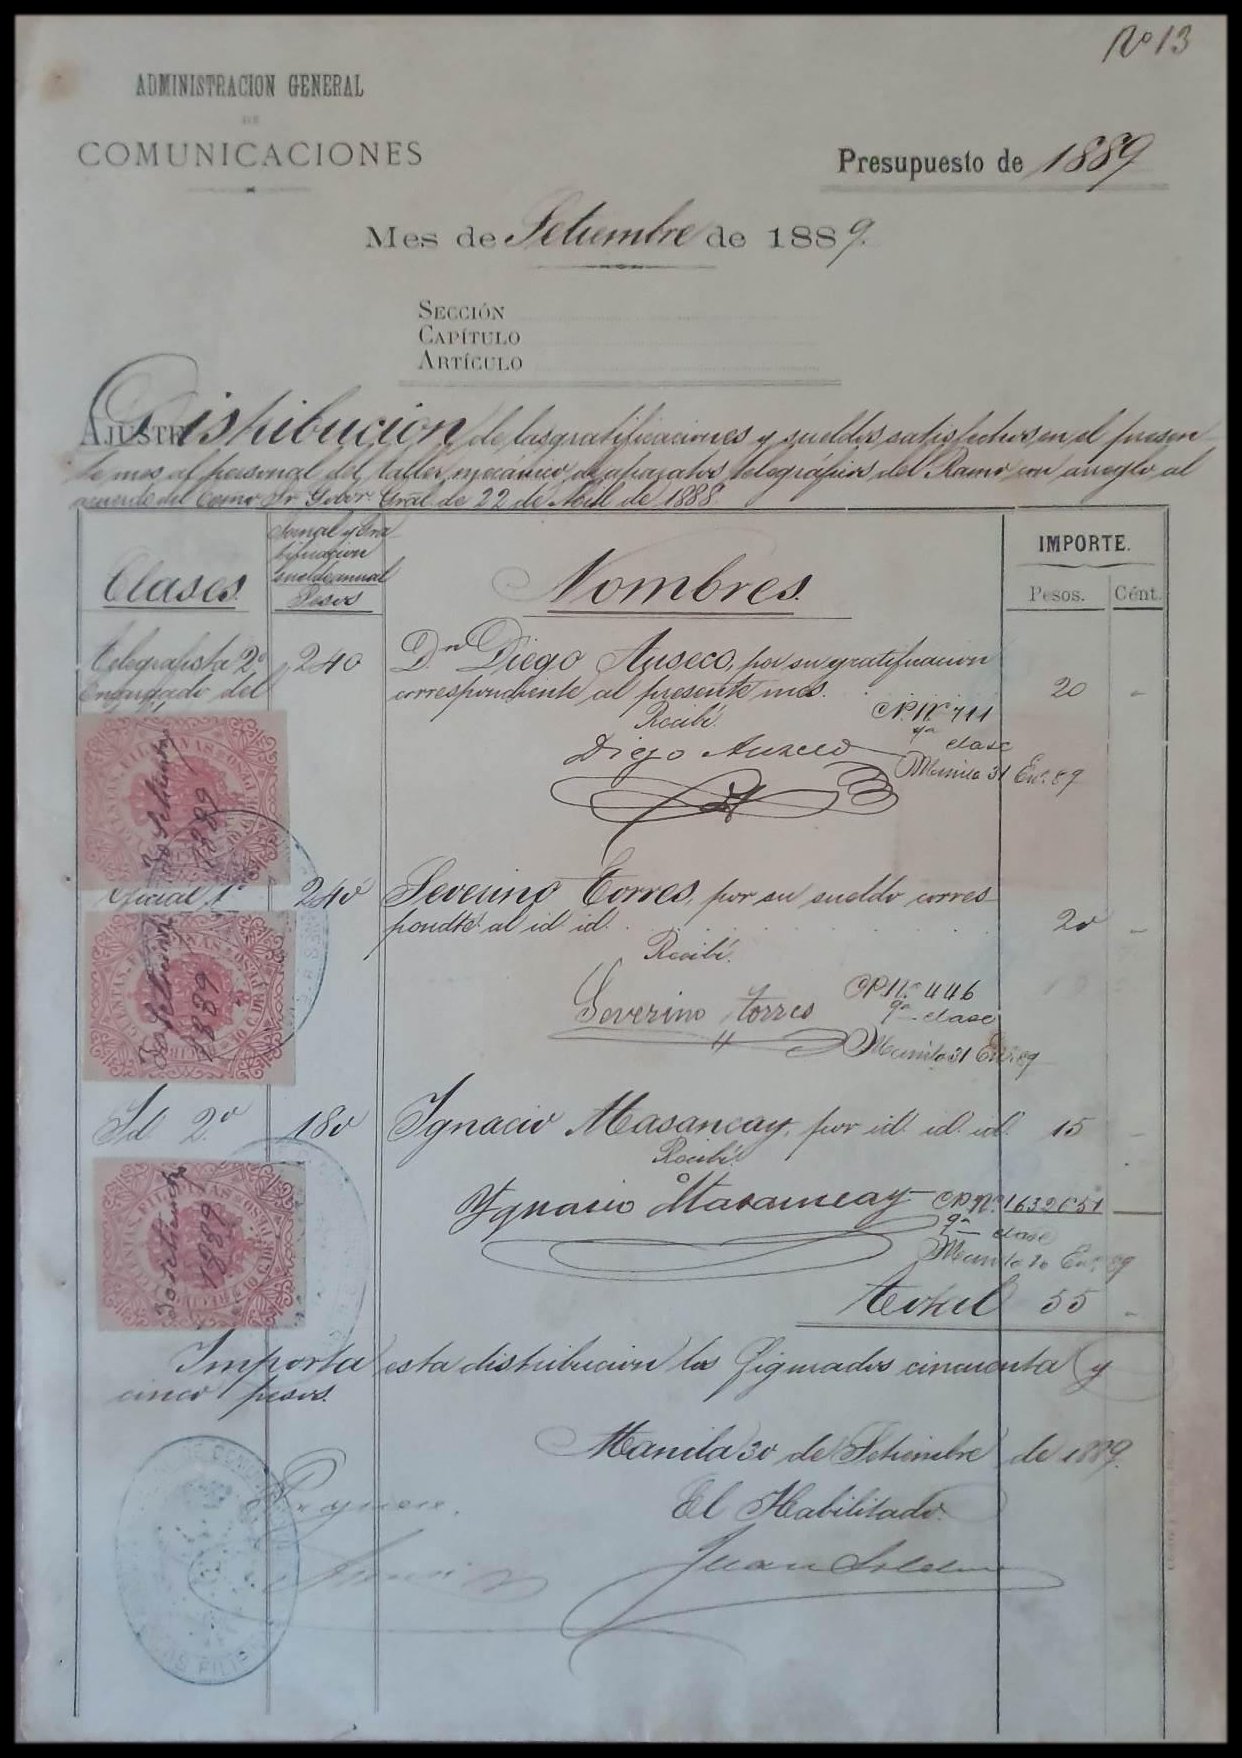 Nº 13
ADMINISTRACION GENERAL
DE
COMUNICACIONES
Presupuesto de 1889
Mes de Setiembre de 1889.
SECCIÓN
CAPÍTULO
ARTÍCULO
AJUSTE Distribucion de las gratificaciones y sueldos satisfechos en el presen
te mes al personal del taller mecánico de aparatos telegráficos del Ramo con arreglo al
acuerdo del Excmo Sr Gobor Gral. de 22 de Abril de 1888.
Clases.
sueldo anual
Pesos
Nombres.
IMPORTE.
Pesos. Cént.
Telegrafista 2º 240 Dn Diego Auseco, por su gratificacion
Encargado del correspondiente al presente mes. 20 -
Recibí.
CP. Nº 711
Diego Auseco
9ª clase
Manila 31 Enº 89
30 Setiembre
1889
Oficial 1º 240 Severino Torres, por su sueldo corres
pondte al id id. 20 -
Recibí.
CP. Nº 446
Severino Torres
9ª clase
Manila 31 Enº 89
30 Setiembre
1889
Id 2º 180 Ygnacio Masancay, por id. id. id. 15 -
Recibí.
Ygnacio Masancay CP. Nº 1632051
9ª clase
Manila Enº 89
30 Setiembre
1889
Total 55 -
Importa esta distribucion los figurados cincuenta y
cinco pesos.
Manila 30 de Setiembre de 1889.
El Habilitado.
Juan